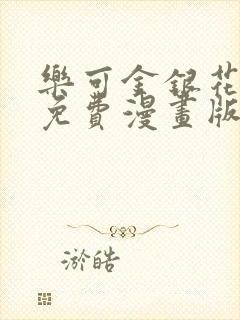 樂可金銀花
免費漫畫版
淤皓